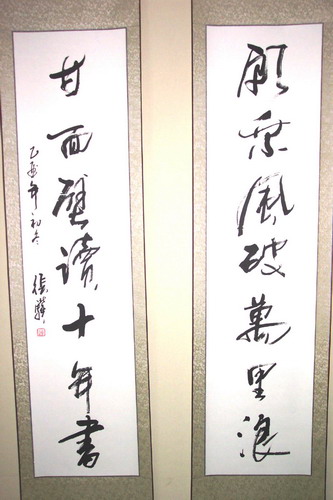 願乘風破萬里浪
甘面壁讀十年書
乙酉年初冬